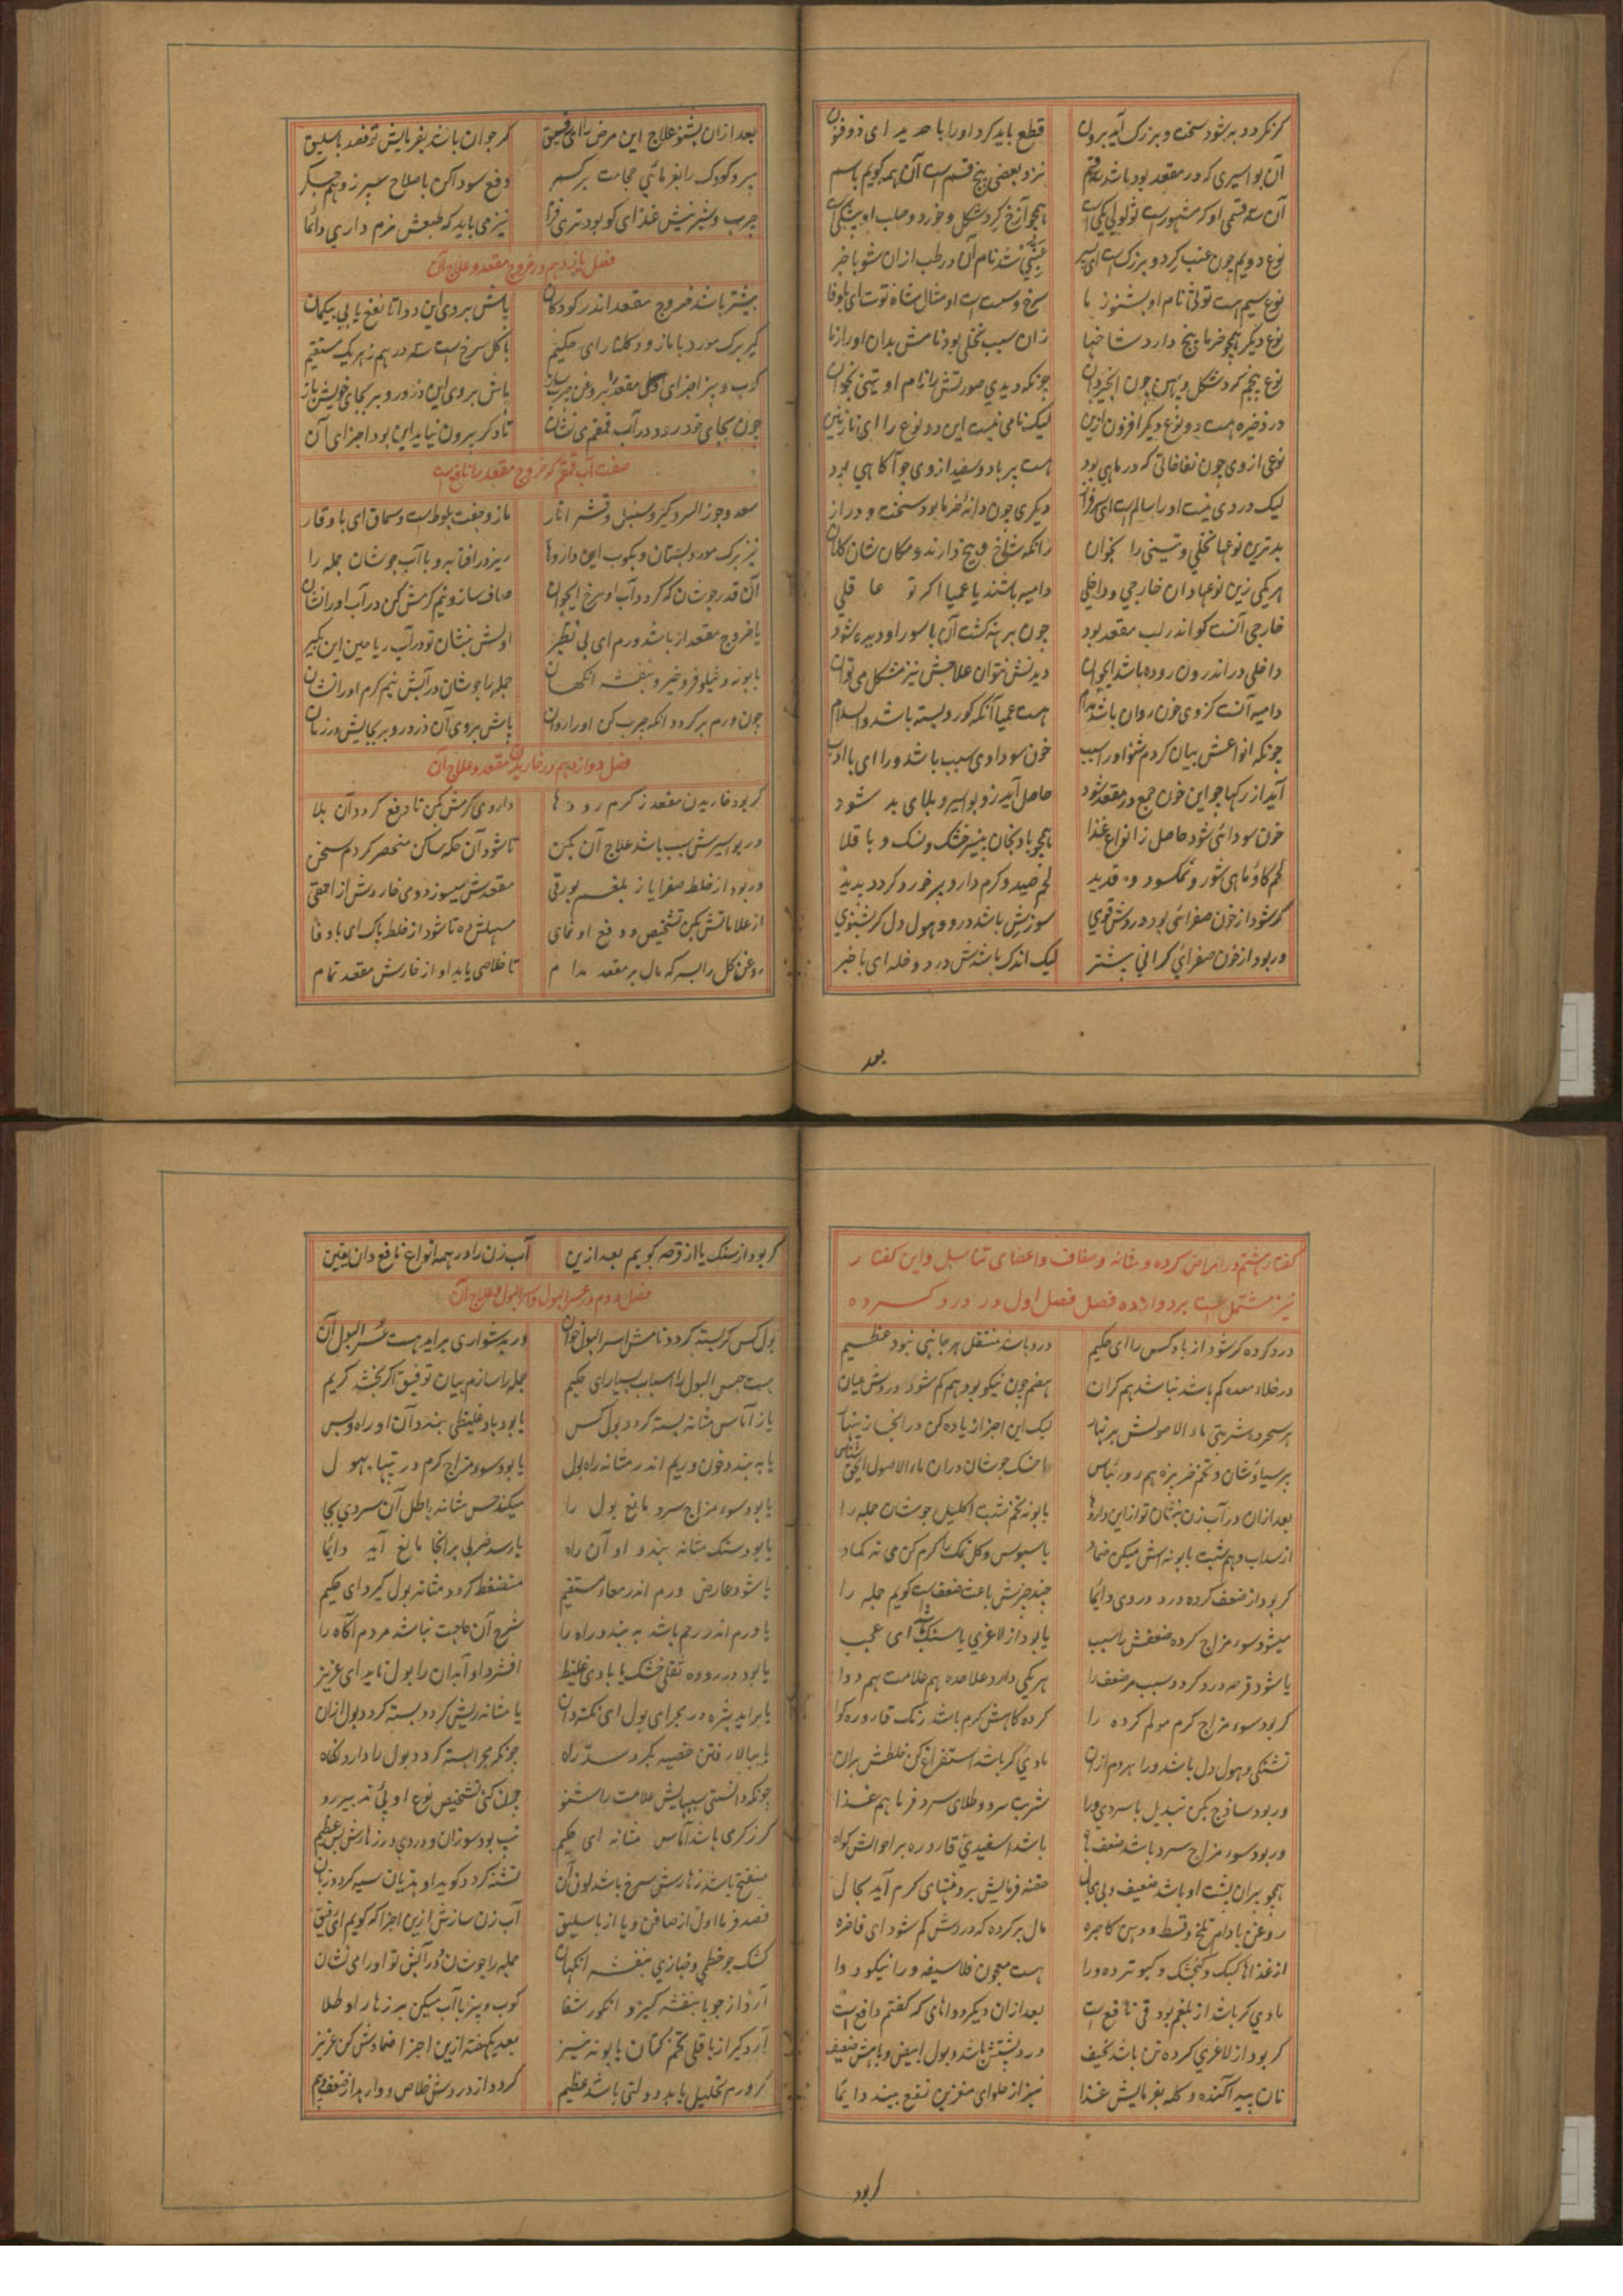 گر نکردد به شود سخت و بزرک آید برون قطع باید کرد او را با حدید ای ذوفنون
آن بواسیری که در مقعد بود باشد سه قسم نزد بعضی پنج قسم است آن همه کویم باسم
آن سه قسمی او که مشهور است ثؤلولی یکی است همچو آزخ کرد شکل و خورد و صلب او بیشکی است
نوع دویم چون عنب کرد و بزرک است ای پسر عنبی شد نام آن در طب ازان شو با خبر
نوع سیم هست توتی نام او بشنو ز ما سرخ و سست است او مثال شاه توت ای باوفا
نوع دیکر همچو خرما بیخ دارد شاخها زان سبب نخلی بود نامش بدان او را ز ما
نوع پنجم کرد شکل و پهن چون انجیر دان چونکه دیدی صورتش را نام او تینی بخوان
در ذخیره هست دو نوع دیکر افزون ازین لیک نامی نیست این دو نوع را ای نازنین
نوعی از وی چون نفاخاتی که در ماهی بود هست پر باد و سفید از وی چو آکاهی بود
لیک دردی نیست او را سالم است ای سرفراز دیکری چون دانه خرما بود سخت و دراز
بدترین نوعها نخلی و تینی را بخوان زانکه شاخ و بیخ دارند و مکان شان کلان
هر یکی زین نوعها دان خارجی و داخلی دامیه باشند یا عمیا اکر تو عاقلی
خارجی آنست کو اندر لب مقعد بود چون برهنه کشت آن باسور او دیده شود
داخلی در اندرون روده باشد ای جوان دیدنش نتوان علاجش نیز مشکل می توان
دامیه آنست کز وی خون روان باشد مدام هست عمیا آنکه کور و بسته باشد والسلام
چونکه انواعش بیان کردم شنو او را سبب خون سوداوی سبب باشد ورا ای با ادب
آید از رکها چو این خون جمع در مقعد شود حاصل آید زو بواسیر و بلای بد شود
خون سودائی شود حاصل ز انواع غذا همچو بادنجان پنیر خشک و نسک و باقلا
لحم کاو ماهی شور و نمکسود و قدید لحم صید و کرم دارو بر خورد کردد پدید
کر شود از خون صفرائی بود دردش قوی سوزش باشد درو و هول دل کر بشنوی
ور بود از خون صفرائی کرانی بیشتر لیک اندک باشدش درد و خله ای با خبر
بعد
بعد ازان بشنو علاج این مرض را ای رفیق کر جوان باشد بفرمایش تو فصد باسلیق
پیر و کودک را بفرمائی حجامت بر کمر دفع سودا کن باصلاح سپرز و هم جکر
چرب و شیرینش غذای کو بود تری فزا نیز می باید که طبعش نرم داری دائما
فصل یازدهم در خروج مقعد و علاج آن
بیشتر باشد خروج مقعد اندر کودکان پاش بر وی این دوا تا نفع یابی بیکمان
کیر برک مورد با مازو و کلنار ای حکیم با کل سرخ است سه درهم ز هر یک مستقیم
کوب و بیز اجزای او کن مقعدش بروغن چرب ساز پاش بر وی این ذرور و بر بجای خویش باز
چون بجای خود رود در آب قمقم می نشان تا دکر بیرون نیاید این بود اجزای آن
صفت آب قمقم که خروج مقعد را نافع است
سعد و جوز السرو کیر و سنبل و قشر انار مازو جفت بلوط است و سماق ای با وقار
نیز برک مورد بستان و بکوب این داروها ریز در افتابه و با آب جوشان جمله را
آن قدر جوشان که کردد آب او سرخ ای جوان صاف ساز و نیم کرمش کن در آب او را نشان
یا خروج مقعد از باشد ورم ای بی نظیر اولش بنشان تو در آب ریاحین این بکیر
بابونه و نیلوفر و خیرو بنفشه آنکهان جمله را جوشان در آبش نیم کرم او را نشان
چون ورم بر کردد آنکه چرب کن او را روان پاش بر وی آن ذرور و بر بجایش در زمان
فصل دوازدهم در خاریدن مقعد و علاج آن
کر بود خاریدن مقعد ز کرم رودها داروی کرمش بکن تا دفع کردد آن بلا
ور بواسیرش سبب باشد علاج آن بکن تا شود آن حکه ساکن مختصر کردم سخن
ور بود از خلط صفرا یا ز بلغم بورقی مقعدش میسوزد و می خاردش از احمقی
از علاماتش بکن تشخیص و دفع او نمای مسهلش ده تا شود از خلط پاک ای باوفا
روغن کل را بسرکه مال بر مقعد مدام تا خلاصی یابد او از خارش مقعد تمام
کفتار هشتم در امراض کرده و مثانه و صفاف و اعضای تناسل و این کفتار
نیز مشتمل است بر دوازده فصل فصل اول در درد کرده
درد کرده کر شود از باد کس را ای حکیم درد باشد منتقل هر جانبی نبود عظیم
در خلاء معده کم باشد نباشد هم کران هضم چون نیکو بود هم کم شود دردش میان
هر سحر ده شربتی ماء الاصولش بر نهار لیک این اجزا زیاده کن در آنجا
پرسیاوشان و تخم خربزه هم
بعد ازان در آب زن بنشان تو از این داروها بابونه تخم شبت اکلیل جوشان جمله را
از سداب و هم شبت بابونه اش میکن ضماد با سبوس و کل نمک را کرم کن می نه کماد
کر بود از ضعف کرده درد در وی دائما چند چیزش باعث ضعف است کویم جمله را
میشود سوء مزاج کرده ضعفش را سبب یا بود از لاغری یا سنک باشد ای عجب
یا شود قرحه درو کردد سبب مر ضعف را هر یکی دارد علاحده هم علامت هم دوا
کر بود سوء مزاج کرم مولم کرده را کرده کاهش کرم باشد رنک قاروره کوا
تشنکی و هول دل باشد ورا هر دم ازان مادی کر باشد استفراغ کن خلطش بران
ور بود ساذج بکن تبدیل با سردی ورا شربت سرد و طلای سرد فرما هم غذا
ور بود سوء مزاج سرد باشد ضعف ها باشد اسفیدی قاروره بر احوالش کواه
همچو پیران پشت او باشد ضعیف و بی مجال حقنه فرمایش بروغنهای کرم آید بحال
روغن بادام تلخ و قسط و دهن کاجره مال بر کرده که دردش کم شود ای فاخره
از غذاها کبک و کنجشک و کبوتر ده ورا هست معجون فلاسفه ورا نیکو دوا
مادی کر باشد از بلغم بود قی نافع است بعد ازان دیکر دواهای که کفتم دافع است
کر بود از لاغری کرده تن باشد نحیف درد پشتش باشد و بول ابیض و باهش ضعیف
نان پیه آکنده و کله بفرمایش غذا نیز از حلوای مغزین نفع بیند دائما
کر بود
کر بود از سنک یا از قرحه کویم بعد ازین آب زن را در همه انواع نافع دان یقین
فصل دوم در عسر البول و اسر البول و علاج آن
بول کس کر بسته کردد نامش اسر البول خوان ور بدشواری برآید هست عسر البول آن
هست حبس البول را اسباب بسیار ای حکیم جمله را سازم بیان توفیق اکر بخشد کریم
یا ز آماس مثانه بسته کردد بول کس یا بود باد غلیظی بندد آن او راه و بس
یا به بندد خون و ریم اندر مثانه راه بول یا بود سوء مزاج کرم در تبها بهول
یا بود سوء مزاج سرد مانع بول را میکند حس مثانه باطل آن سردی بجا
یا بود سنک مثانه بندد او آن راه یا رسد ضربی بر آنجا مانع آید دائما
یا شود عارض ورم اندر معاء مستقیم منضغط کردد مثانه بول کیرد ای حکیم
یا ورم اندر رحم باشد به بندد راه را شرح آن حاجت نباشد مردم آکاه را
یا بود در روده ثفلی خشک یا بادی غلیظ افشرد او آبدان را بول ناید ای عزیز
یا برآید بثره در مجرای بول ای نکته دان یا مثانه ریش کردد بسته کردد بول ازان
یا ببالا رفتن خصیه بکردد سد راه چونکه مجرا بسته کردد بول را دارد نکاه
چونکه دانستی سببهایش علامت را شنو چون کنی تشخیص نوع او پی تدبیر رو
کر ز کرمی باشد آماس مثانه ای حکیم تب بود سوزان و دردی در زهارش بس عظیم
منتفخ باشد زهارش سرخ باشد لون آن تشنه کردد کوید او هذیان سیه کردد زبان
فصد فرما اول از صافن و یا از باسلیق آب زن سازش ازین اجزا که کویم ای رفیق
کشک جو خطمی و خبازی بنفشه آنکهان جمله را جوشان در آبش تو او را می نشان
آرد از جو با بنفشه کیر و انکور شفا کوب و بیز با آب میکن بر زهار او طلا
آرد کیر از باقلی تخم کتان بابونه نیز بعد یکهفته ازین اجزا ضمادش کن عزیز
کر ورم تحلیل یابد دولتی باشد عظیم کردد از دردش خلاص و وارهد از ضعف و بیم